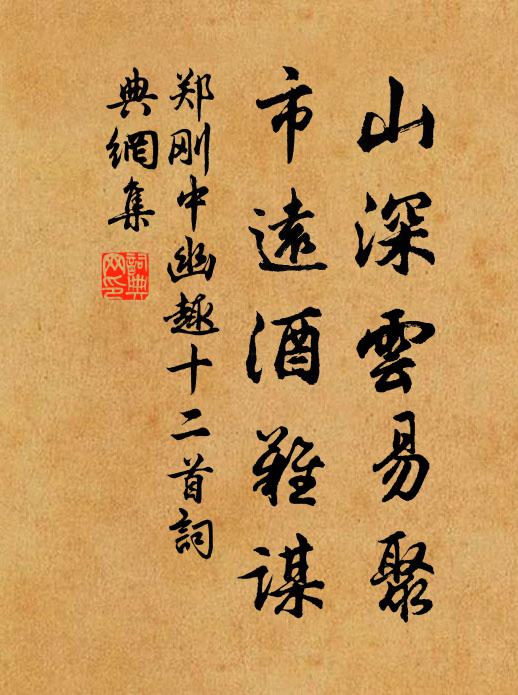 山深雲易聚
市遠酒難謀
郑刚中幽趣十二首詞
典網集
詞典網印